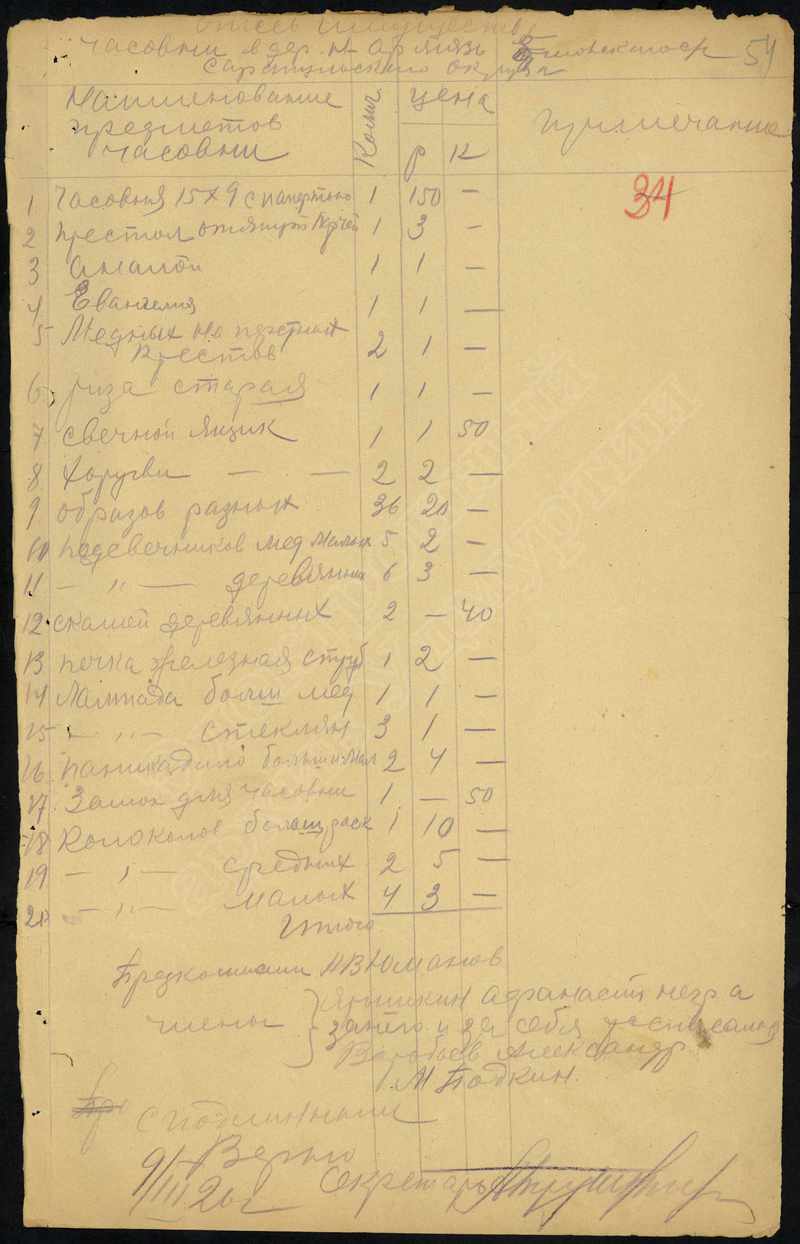 Опись имущества
Часовни в дер. 54
Сарапульского округа
Наименование предметов часовни Колич. Цена Примечание
р к
34
1 Часовня 15х9 с папертью 1 150 —
2 Престол 1 3 —
3 Аналой 1 1 —
4 Евангелия 1 1 —
5 Медных на престных
Крестов 2 1 —
6 риза старая 1 1 —
7 свечной ящик 1 1 50
8 Хоругви — — 2 2 —
9 образов разных 36 20 —
10 подсвечников мед малых 5 2 —
11 — " — деревянных 6 3 —
12 скамей деревянных 2 — 40
13 печка железная с труб 1 2 —
14 Лампада больш мед 1 1 —
15 — " — стеклян 3 1 —
16 паникадило больш и мал 2 4 —
17 Замок для часовни 1 — 50
18 Колоколов больш 1 10 —
19 — " — средних 2 5 —
20 — " — малых 4 3 —
Итого
Предкомиссии Юманов
члены Афанасий
за него и за себя
Воробьев Александр
М Бодкин.
С подлинным
Верно
9/III 20 г Секретарь